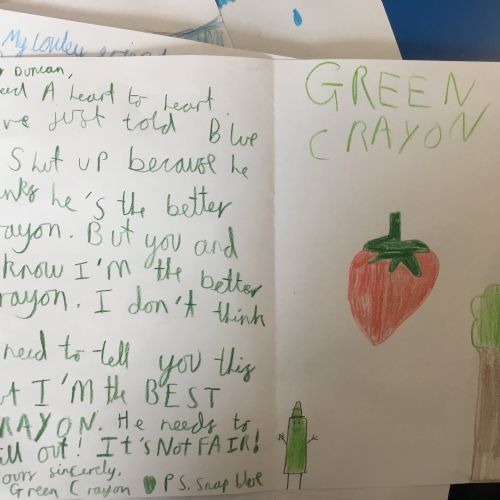 My
Duncan,
A heart to heart.
just told Blue
Shut up because he
he's the better
But you and
know I'm the better
I don't think
need to tell you this
I'm the BEST
CRAYON. He needs to
out! It's Not FAIR!
sincerly,
Green Crayon P S. Snap blue
GREEN
CRAYON